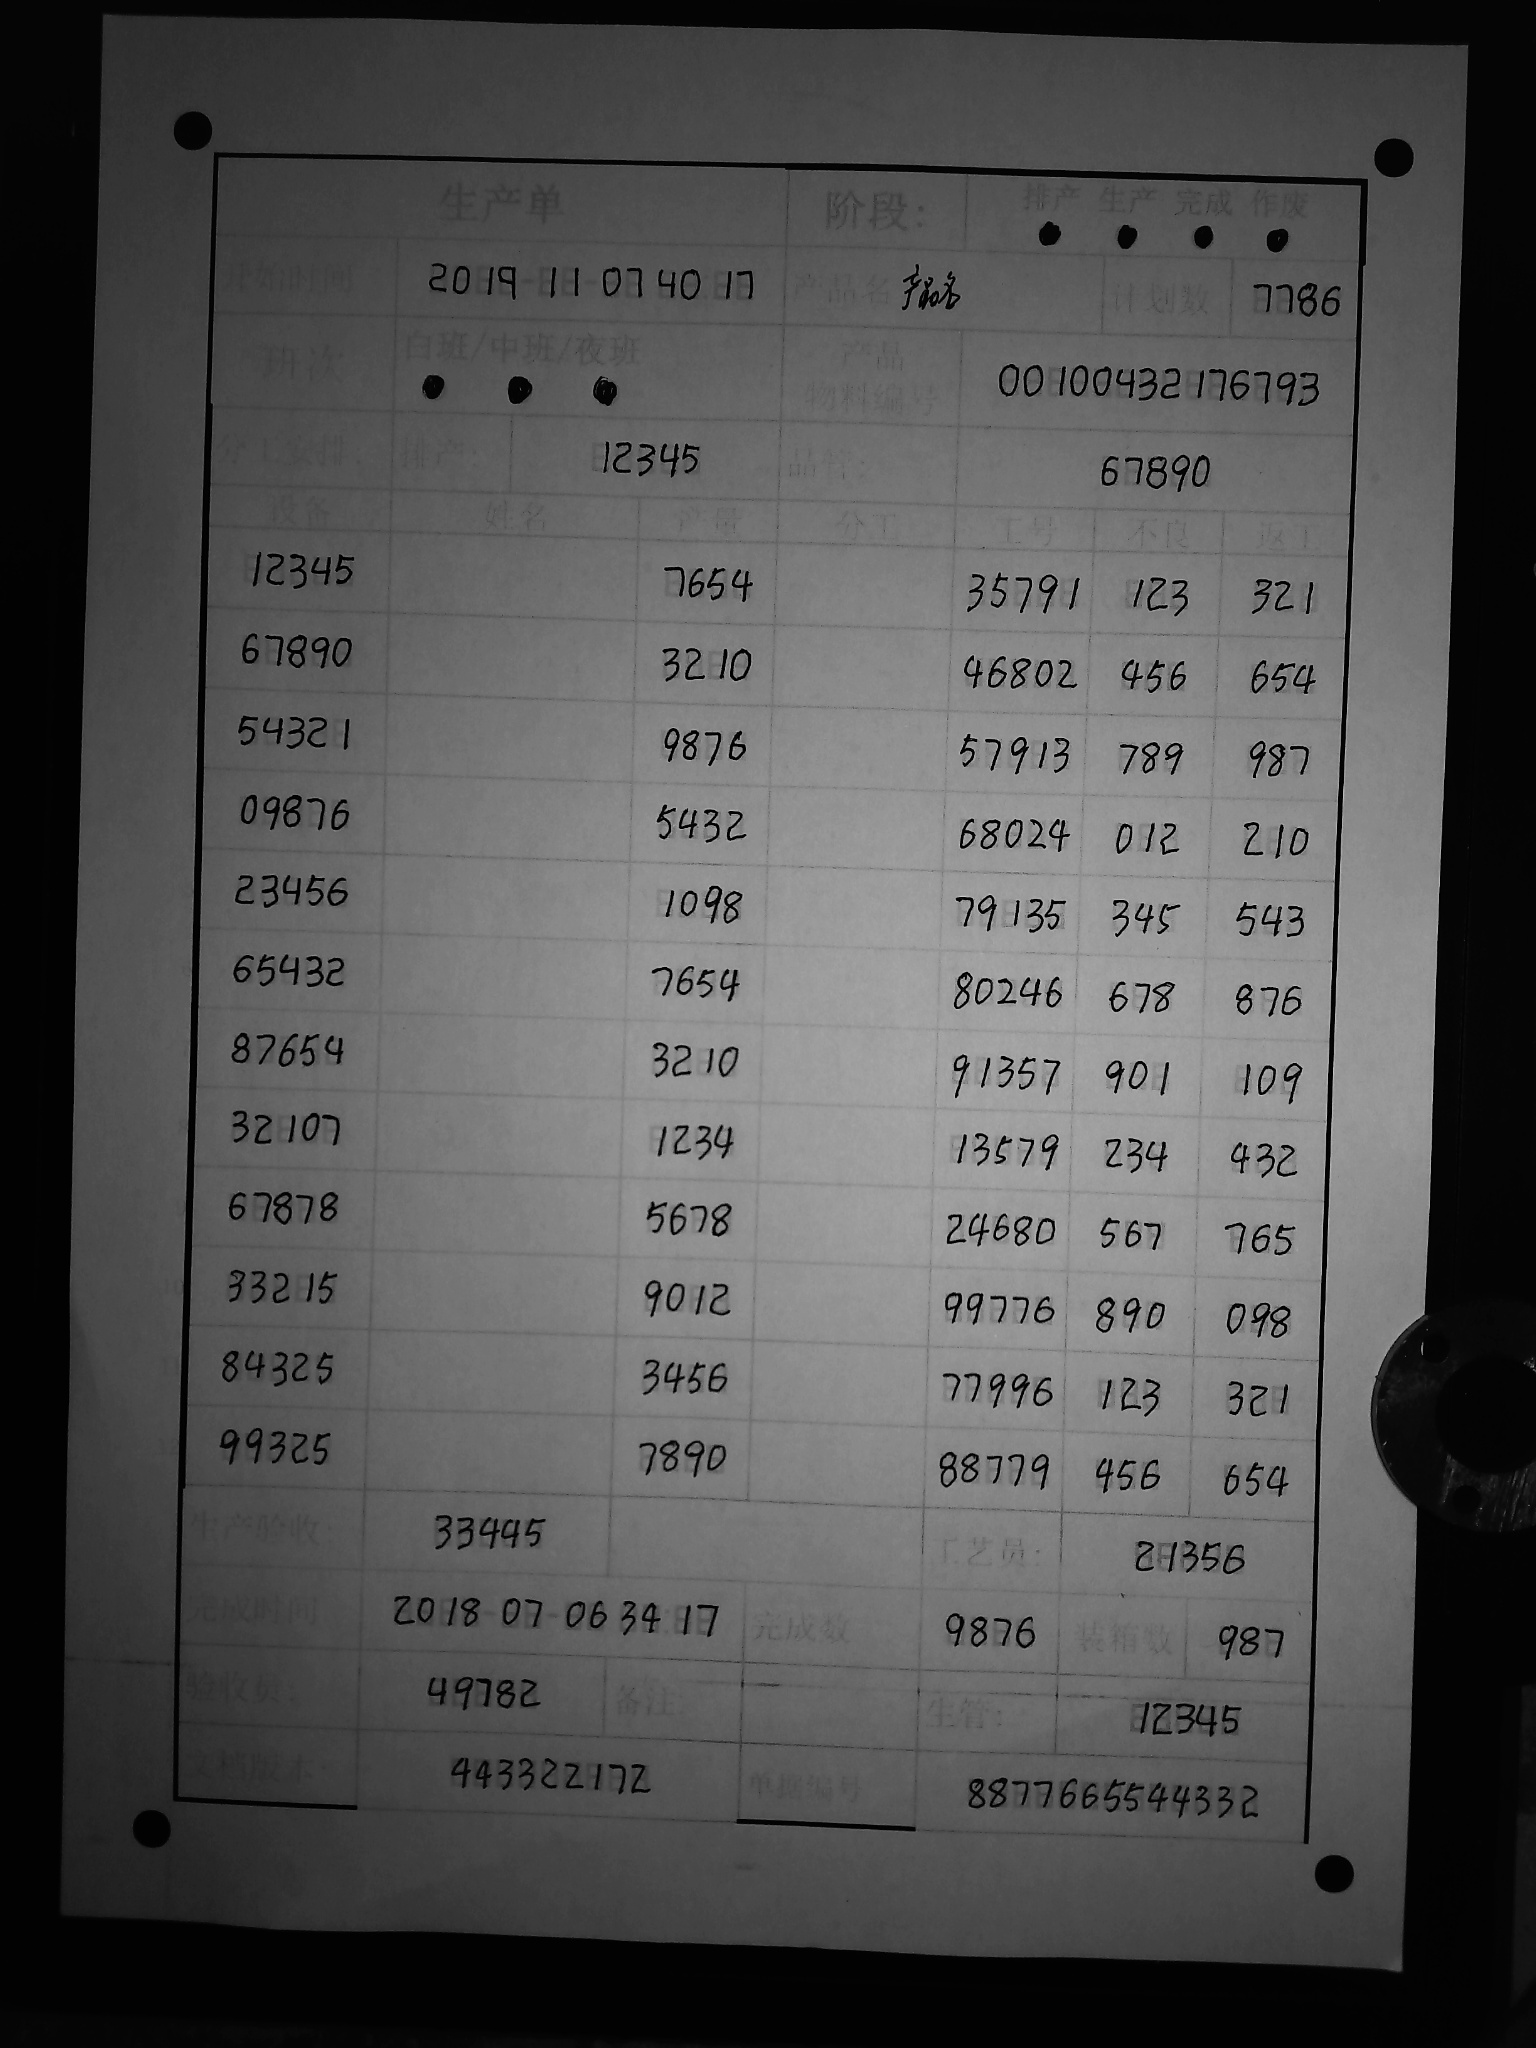 生产单 阶段: 排产 生产 完成 作废
开始时间 2019 11 07 40 17 产品名 产品名 计划数 7786
班次 白班/中班/夜班 产品物料编号 00100432176793
分工安排: 排产: 12345 品管: 67890
设备 姓名 产量 分工 工号 不良 返工
12345 7654 35791 123 321
67890 3210 46802 456 654
54321 9876 57913 789 987
09876 5432 68024 012 210
23456 1098 79135 345 543
65432 7654 80246 678 876
87654 3210 91357 901 109
32107 1234 13579 234 432
67878 5678 24680 567 765
33215 9012 99776 890 098
84325 3456 77996 123 321
99325 7890 88779 456 654
生产验收: 33445 工艺员: 21356
完成时间 2018 07 06 34 17 完成数 9876 装箱数 987
验收员: 49782 备注: 生管: 12345
文档版本: 443322172 单据编号 8877665544332